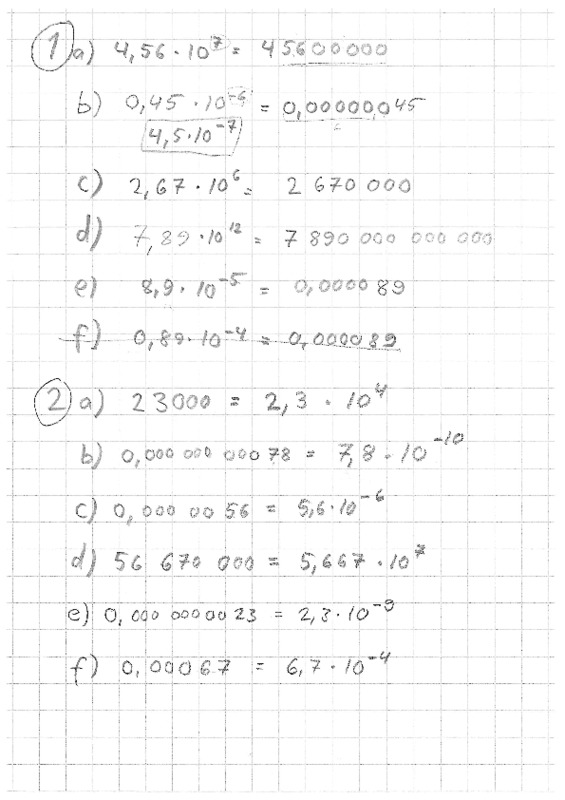 1 a) 4,56 · 10⁷ = 45600000
b) 0,45 · 10⁻⁶ = 0,00000045
4,5·10⁻⁷
c) 2,67 · 10⁶ = 2 670 000
d) 7,89 · 10¹² = 7 890 000 000 000
e) 8,9 · 10⁻⁵ = 0,000089
f) 0,89 · 10⁻⁴ = 0,000089
2 a) 23000 = 2,3 · 10⁴
b) 0,000 000 000 78 = 7,8 · 10⁻¹⁰
c) 0,000 00 56 = 5,6·10⁻⁶
d) 56 670 000 = 5,667 · 10⁷
e) 0,000 0000 0 23 = 2,3 · 10⁻⁹
f) 0,00067 = 6,7 · 10⁻⁴